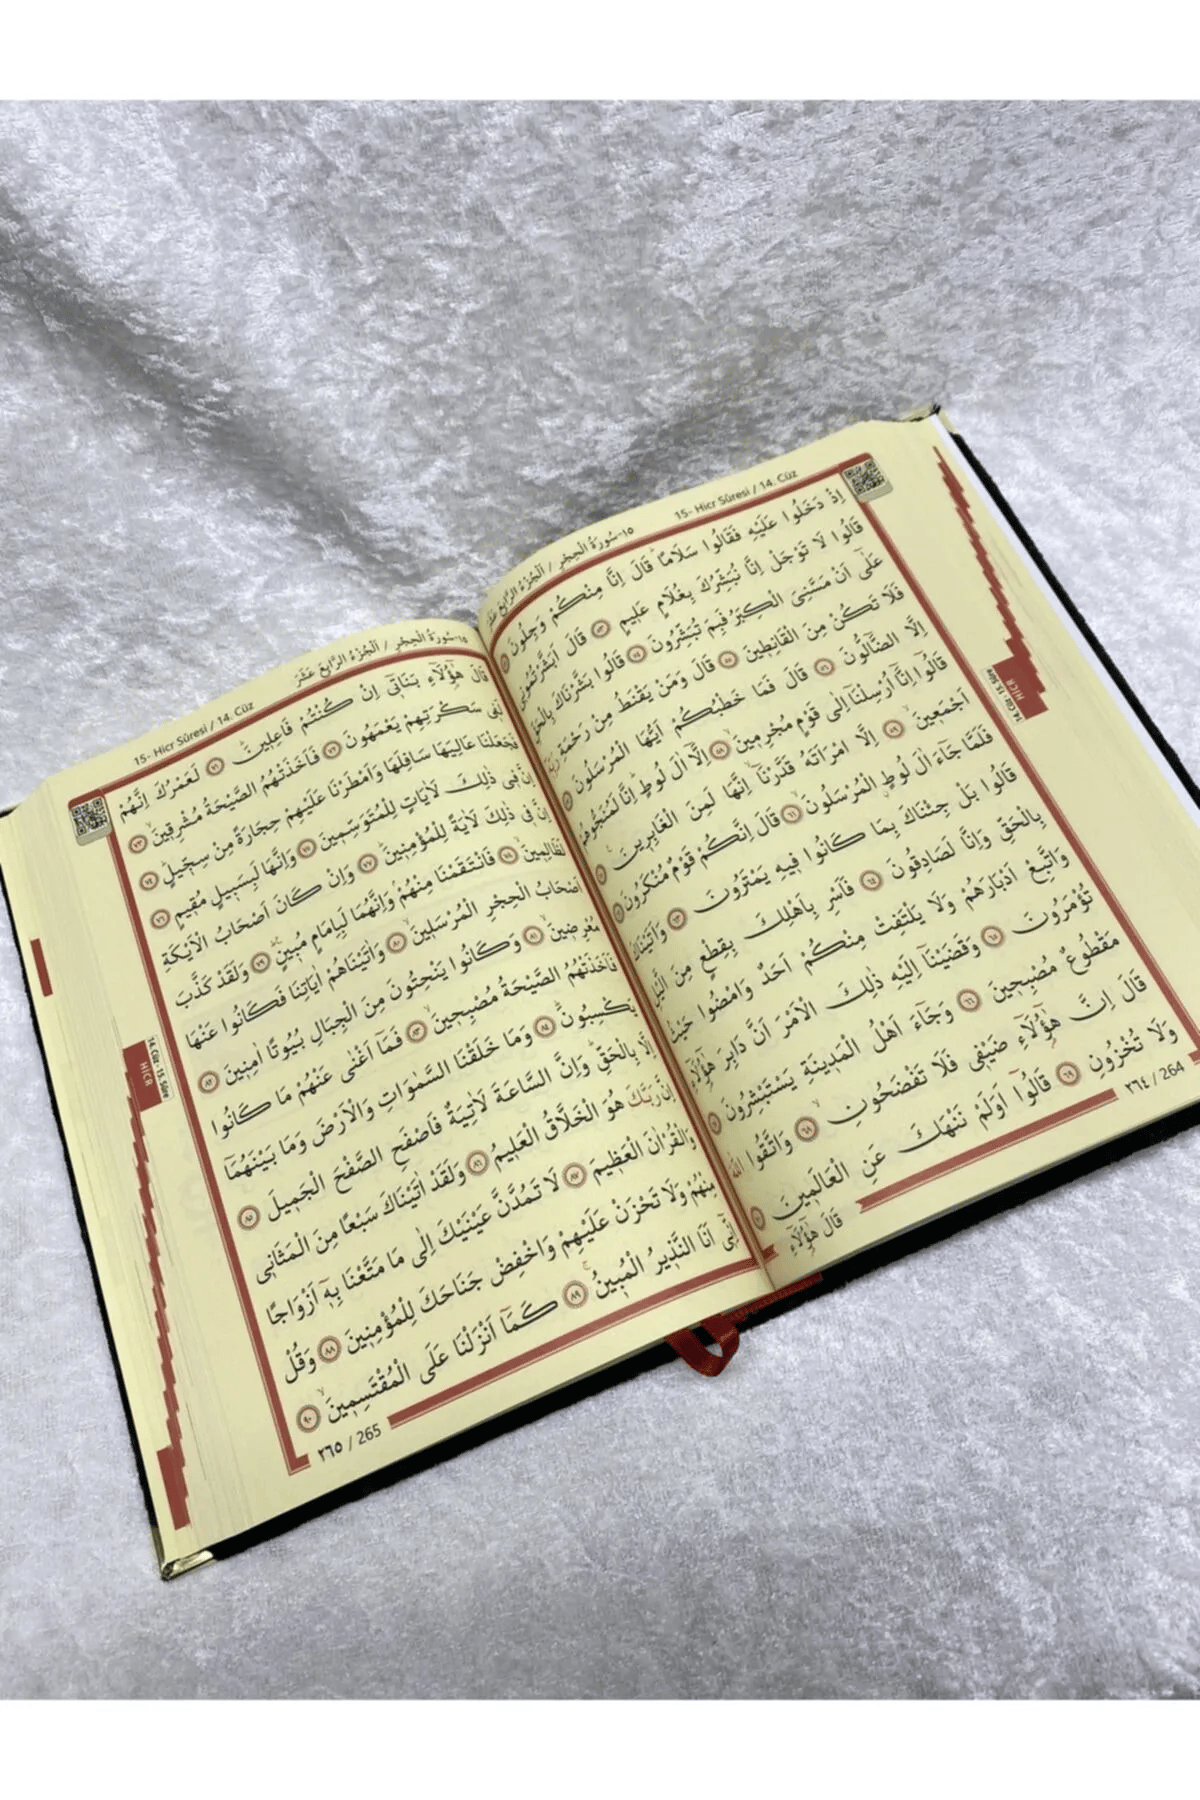 ١٥-سُورَةُ الْحِجْرِ / اَلْجُزْءُ الرَّابِعَ عَشَرَ
15- Hicr Sûresi / 14. Cüz
اِذْ دَخَلُوا عَلَيْهِ فَقَالُوا سَلَامًاۜ قَالَ اِنَّا مِنْكُمْ وَجِلُونَ ﴿٥٢﴾
قَالُوا لَا تَوْجَلْ اِنَّا نُبَشِّرُكَ بِغُلَامٍ عَلٖيمٍ ﴿٥٣﴾ قَالَ اَبَشَّرْتُمُونٖى
عَلٰٓى اَنْ مَسَّنِىَ الْكِبَرُ فَبِمَ تُبَشِّرُونَ ﴿٥٤﴾ قَالُوا بَشَّرْنَاكَ بِالْحَقِّ
فَلَا تَكُنْ مِنَ الْقَانِطٖينَ ﴿٥٥﴾ قَالَ وَمَنْ يَقْنَطُ مِنْ رَحْمَةِ رَبِّهٖٓ
اِلَّا الضَّٓالُّونَ ﴿٥٦﴾ قَالَ فَمَا خَطْبُكُمْ اَيُّهَا الْمُرْسَلُونَ ﴿٥٧﴾
قَالُٓوا اِنَّٓا اُرْسِلْنَٓا اِلٰى قَوْمٍ مُجْرِمٖينَۙ ﴿٥٨﴾ اِلَّٓا اٰلَ لُوطٍۜ اِنَّا لَمُنَجُّوهُمْ
اَجْمَعٖينَۙ ﴿٥٩﴾ اِلَّا امْرَاَتَهُ قَدَّرْنَٓاۙ اِنَّهَا لَمِنَ الْغَابِرٖينَ۟ ﴿٦٠﴾
فَلَمَّا جَٓاءَ اٰلَ لُوطٍ الْمُرْسَلُونَۙ ﴿٦١﴾ قَالَ اِنَّكُمْ قَوْمٌ مُنْكَرُونَ ﴿٦٢﴾
قَالُوا بَلْ جِئْنَاكَ بِمَا كَانُوا فٖيهِ يَمْتَرُونَ ﴿٦٣﴾ وَاَتَيْنَاكَ
بِالْحَقِّ وَاِنَّا لَصَادِقُونَ ﴿٦٤﴾ فَاَسْرِ بِاَهْلِكَ بِقِطْعٍ مِنَ الَّيْلِ
وَاتَّبِعْ اَدْبَارَهُمْ وَلَا يَلْتَفِتْ مِنْكُمْ اَحَدٌ وَامْضُوا حَيْثُ
تُؤْمَرُونَ ﴿٦٥﴾ وَقَضَيْنَٓا اِلَيْهِ ذٰلِكَ الْاَمْرَ اَنَّ دَابِرَ هٰٓؤُ۬لَٓاءِ
مَقْطُوعٌ مُصْبِحٖينَ ﴿٦٦﴾ وَجَٓاءَ اَهْلُ الْمَدٖينَةِ يَسْتَبْشِرُونَ ﴿٦٧﴾
قَالَ اِنَّ هٰٓؤُ۬لَٓاءِ ضَيْفٖى فَلَا تَفْضَحُونِۙ ﴿٦٨﴾ وَاتَّقُوا اللّٰهَ
وَلَا تُخْزُونِ ﴿٦٩﴾ قَالُٓوا اَوَلَمْ نَنْهَكَ عَنِ الْعَالَمٖينَ ﴿٧٠﴾
قَالَ هٰٓؤُ۬لَٓاءِ
٢٦٤ / 264
14.Cüz - 15. Sûre
HİCR
١٥-سُورَةُ الْحِجْرِ / اَلْجُزْءُ الرَّابِعَ عَشَرَ
15- Hicr Sûresi / 14. Cüz
قَالَ هٰٓؤُ۬لَٓاءِ بَنَاتٖٓى اِنْ كُنْتُمْ فَاعِلٖينَۜ ﴿٧١﴾ لَعَمْرُكَ اِنَّهُمْ
لَفٖى سَكْرَتِهِمْ يَعْمَهُونَ ﴿٧٢﴾ فَاَخَذَتْهُمُ الصَّيْحَةُ مُشْرِقٖينَۙ ﴿٧٣﴾
فَجَعَلْنَا عَالِيَهَا سَافِلَهَا وَاَمْطَرْنَا عَلَيْهِمْ حِجَارَةً مِنْ سِجّٖيلٍۜ ﴿٧٤﴾
اِنَّ فٖى ذٰلِكَ لَاٰيَاتٍ لِلْمُتَوَسِّمٖينَ ﴿٧٥﴾ وَاِنَّهَا لَبِسَبٖيلٍ مُقٖيمٍ ﴿٧٦﴾
اِنَّ فٖى ذٰلِكَ لَاٰيَةً لِلْمُؤْمِنٖينَۜ ﴿٧٧﴾ وَاِنْ كَانَ اَصْحَابُ الْاَيْكَةِ
لَظَالِمٖينَۙ ﴿٧٨﴾ فَانْتَقَمْنَا مِنْهُمْۢ وَاِنَّهُمَا لَبِاِمَامٍ مُبٖينٍ۟ ﴿٧٩﴾ وَلَقَدْ كَذَّبَ
اَصْحَابُ الْحِجْرِ الْمُرْسَلٖينَۙ ﴿٨٠﴾ وَاٰتَيْنَاهُمْ اٰيَاتِنَا فَكَانُوا عَنْهَا
مُعْرِضٖينَۙ ﴿٨١﴾ وَكَانُوا يَنْحِتُونَ مِنَ الْجِبَالِ بُيُوتًا اٰمِنٖينَ ﴿٨٢﴾
فَاَخَذَتْهُمُ الصَّيْحَةُ مُصْبِحٖينَۙ ﴿٨٣﴾ فَمَٓا اَغْنٰى عَنْهُمْ مَا كَانُوا
يَكْسِبُونَۜ ﴿٨٤﴾ وَمَا خَلَقْنَا السَّمٰوَاتِ وَالْاَرْضَ وَمَا بَيْنَهُمَٓا
اِلَّا بِالْحَقِّۜ وَاِنَّ السَّاعَةَ لَاٰتِيَةٌ فَاصْفَحِ الصَّفْحَ الْجَمٖيلَ ﴿٨٥﴾
اِنَّ رَبَّكَ هُوَ الْخَلَّاقُ الْعَلٖيمُ ﴿٨٦﴾ وَلَقَدْ اٰتَيْنَاكَ سَبْعًا مِنَ الْمَثَانٖى
وَالْقُرْاٰنَ الْعَظٖيمَ ﴿٨٧﴾ لَا تَمُدَّنَّ عَيْنَيْكَ اِلٰى مَا مَتَّعْنَا بِهٖٓ اَزْوَاجًا
مِنْهُمْ وَلَا تَحْزَنْ عَلَيْهِمْ وَاخْفِضْ جَنَاحَكَ لِلْمُؤْمِنٖينَ ﴿٨٨﴾ وَقُلْ
اِنّٖٓى اَنَا النَّذٖيرُ الْمُبٖينُۚ ﴿٨٩﴾ كَمَٓا اَنْزَلْنَا عَلَى الْمُقْتَسِمٖينَۙ ﴿٩٠﴾
٢٦٥ / 265
14.Cüz - 15. Sûre
HİCR